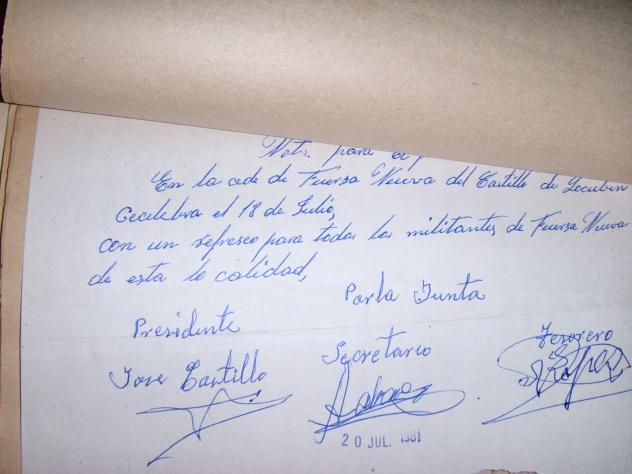 Nota para
En la cede de Fuersa Nueva del Castillo de Locubin
Cecelebra el 18 de Julio,
con un refresco para todos los militantes de Fuersa Nueva
de esta lo calidad,
Porla Junta
Presidente Secretario Tesorero
Jose Castillo
20 JUL. 1981